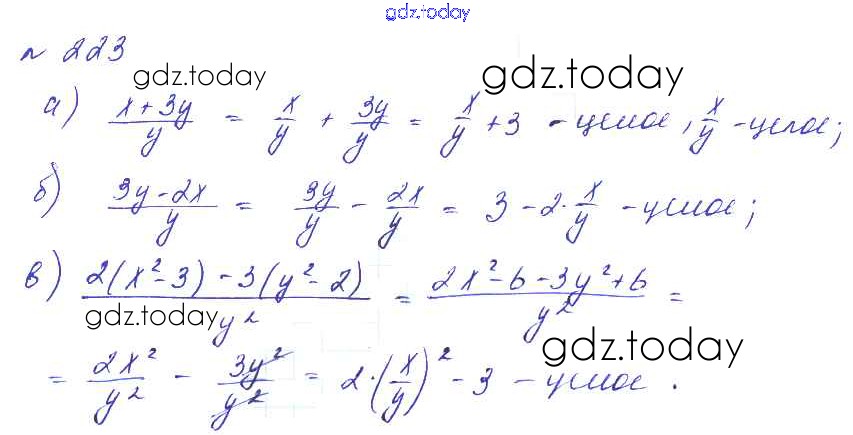 gdz.today
№ 223
gdz.today gdz.today
а) (x+3y)/y = x/y + 3y/y = x/y + 3 - целое, x/y - целое;
б) (3y-2x)/y = 3y/y - 2x/y = 3 - 2·x/y - целое;
в) (2(x²-3)-3(y²-2))/y² = (2x²-6-3y²+6)/y² =
gdz.today gdz.today
= 2x²/y² - 3y²/y² = 2·(x/y)² - 3 - целое.